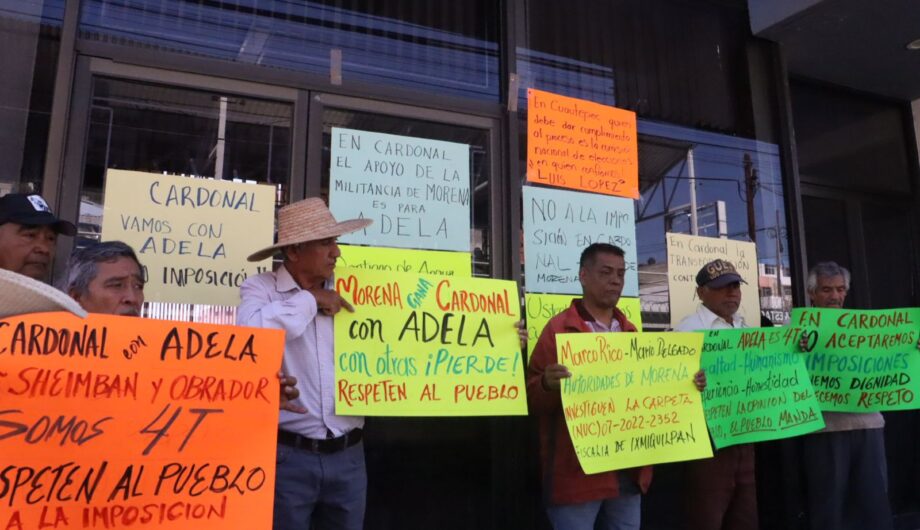 EN CARDONAL
EL APOYO DE LA
MILITANCIA DE MORENA
ES PARA
ADELA
En Cuautepec, quien
debe dar cumplimiento
al proceso es la comisión
nacional de elecciones
y en quien confiamos!
LUIS LOPEZ
CARDONAL
VAMOS CON
ADELA
IMPOSICIÓN
NO A LA IMPO
SICIÓN EN CARDO
NAL
MORENA
En Cardonal
LA TRANSFORMA
CON
Santiago de Anaya
MORENA GANA CARDONAL
CON ADELA
CON OTRAS ¡PIERDE!
RESPETEN AL PUEBLO
MARCO RICO - MARIO DELGADO
AUTORIDADES DE MORENA
INVESTIGUEN LA CARPETA
(NUC) 07-2022-2352
FISCALIA DE IXMIQUILPAN
ADELA ES 4T
HUMANISMO
HONESTIDAD
LA OPINION DEL
EL PUEBLO MANDA
EN CARDONAL
ACEPTAREMOS
IMPOSICIONES
DIGNIDAD
RESPETO
CARDONAL CON ADELA
SHEIMBAN Y OBRADOR
SOMOS 4T
RESPETEN AL PUEBLO
A LA IMPOSICION